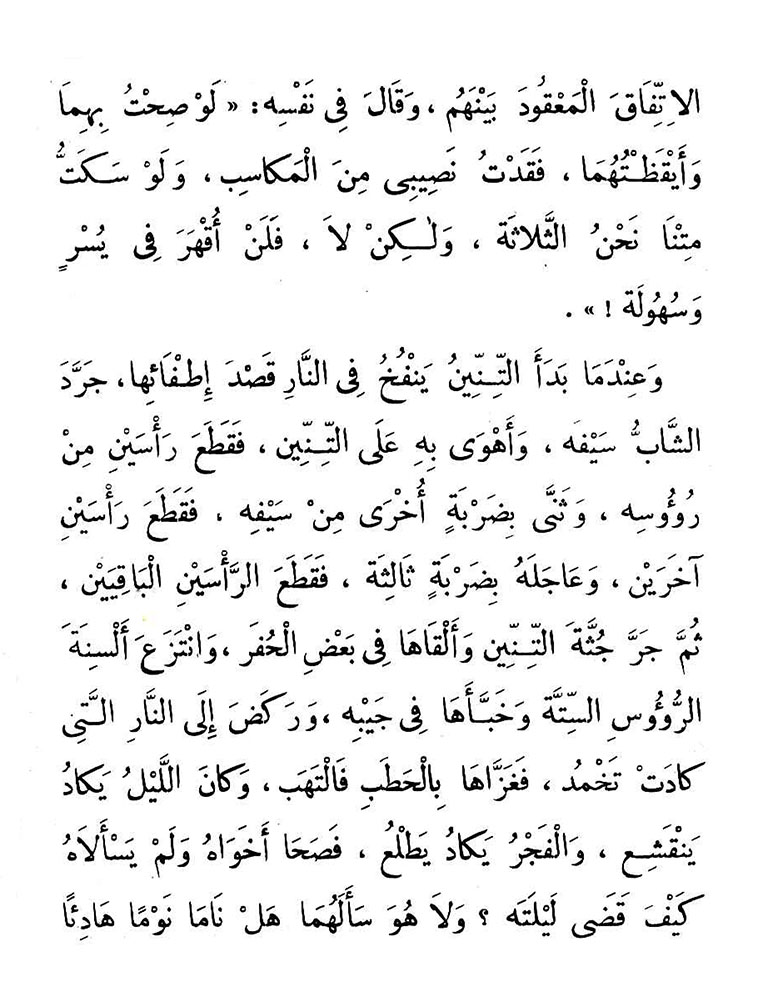 الاِتِّفَاقَ الْمَعْقُودَ بَيْنَهُم ، وَقَالَ فِى نَفْسِه : « لَوْ صِحْتُ بِهِمَا
وَأَيْقَظْتُهُمَا ، فَقَدْتُ نَصِيبِى مِنَ الْمَكاسِب ، وَلَوْ سَكَتُّ
مِتْنَا نَحْنُ الثَّلاثَة ، وَلٰكِنْ لاَ ، فَلَنْ أُقْهَرَ فِى يُسْرٍ
وَسُهُولَة ! » .
وَعِنْدَمَا بَدَأَ التِّنِّينُ يَنْفُخُ فِى النَّارِ قَصْدَ إِطْفَائِها ، جَرَّدَ
الشَّابُّ سَيْفَه ، وَأَهْوَى بِهِ عَلَى التِّنِّين ، فَقَطَعَ رَأْسَيْنِ مِنْ
رُؤُوسِه ، وَثَنَّى بِضَرْبَةٍ أُخْرَى مِنْ سَيْفِه ، فَقَطَعَ رَأْسَيْنِ
آخَرَيْن ، وَعَاجَلَهُ بِضَرْبَةٍ ثَالِثَة ، فَقَطَعَ الرَّأْسَيْنِ الْبَاقِيَيْن ،
ثُمَّ جَرَّ جُثَّةَ التِّنِّينِ وَأَلْقَاهَا فِى بَعْضِ الْحُفَر ، وَانْتَزَعَ أَلْسِنَةَ
الرُّؤُوسِ السِّتَّة وَخَبَّأَهَا فِى جَيْبِه ، وَرَكَضَ إِلَى النَّارِ الَّتِى
كادَتْ تَخْمُد ، فَغَزَّاهَا بِالْحَطَبِ فَالْتَهَب ، وَكانَ اللَّيْلُ يَكادُ
يَنْقَشِع ، وَالْفَجْرُ يَكادُ يَطْلُعُ ، فَصَحَا أَخَوَاهُ وَلَمْ يَسْأَلاَهُ
كَيْفَ قَضَى لَيْلَتَه ؟ وَلاَ هُوَ سَأَلَهُمَا هَلْ نَامَا نَوْمًا هَادِئًا